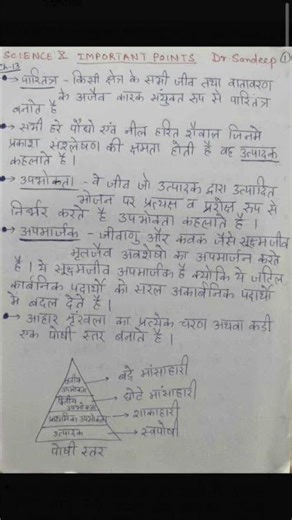 SCIENCE X IMPORTANT POINTS Dr Sandeep ①
Ch-13
→ पारितंत्र - किसी क्षेत्र के सभी जीव तथा वातावरण
के अजैव कारक संयुक्त रुप से पारितंत्र
बनाते है
→ सभी हरे पौधो एंव नील हरित शैवाल जिनमे
प्रकाश संश्लेषण की क्षमता होती है वह उत्पादक
कहलाते है ।
→ उपभोक्ता - वे जीव जो उत्पादक द्वारा उत्पादित
भोजन पर प्रत्यक्ष व परोक्ष रुप से
निर्भर करते है उपभोक्ता कहलाते है ।
→ अपमार्जक - जीवाणु और कवक जैसे सूक्ष्मजीव
मृतजैव अवशेषो का अपमार्जन करते
है । ये सूक्ष्मजीव अपमार्जक है क्योकि ये जटिल
कार्बनिक पदार्थो को सरल अकार्बनिक पदार्थो
मे बदल देते है ।
→ आहार श्रृंखला का प्रत्येक चरण अथवा कडी
एक पोषी स्तर बनाते है ।
तृतीय उपभोक्ता → बडे मांसाहारी
द्वितीय उपभोक्ता → छोटे मांसाहारी
प्राथमिक उपभोक्ता → शाकाहारी
उत्पादक → स्वपोषी
पोषी स्तर